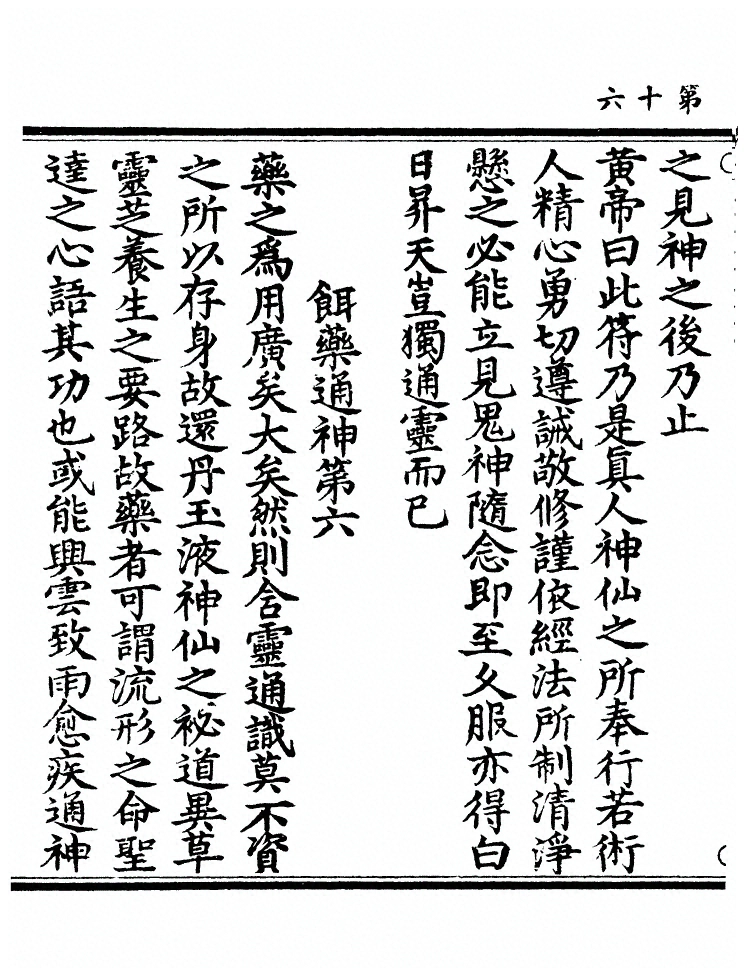 第十六
之見神之後乃止
黃帝曰此符乃是眞人神仙之所奉行若術
人精心勇切遵誡敬修謹依經法所制清淨
懸之必能立見鬼神隨念即至久服亦得白
日昇天豈獨通靈而已
餌藥通神第六
藥之爲用廣矣大矣然則含靈通識莫不資
之所以存身故還丹玉液神仙之祕道異草
靈芝養生之要路故藥者可謂流形之命聖
達之心語其功也或能興雲致雨愈疾通神